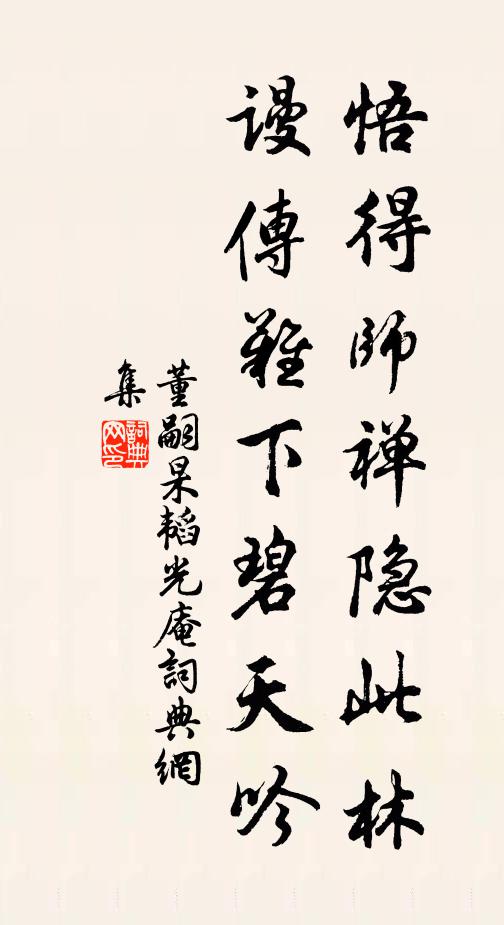 悟得师禅隐此林
谩傳難下碧天吟
董嗣杲韬光庵詞典網
集
詞典网印